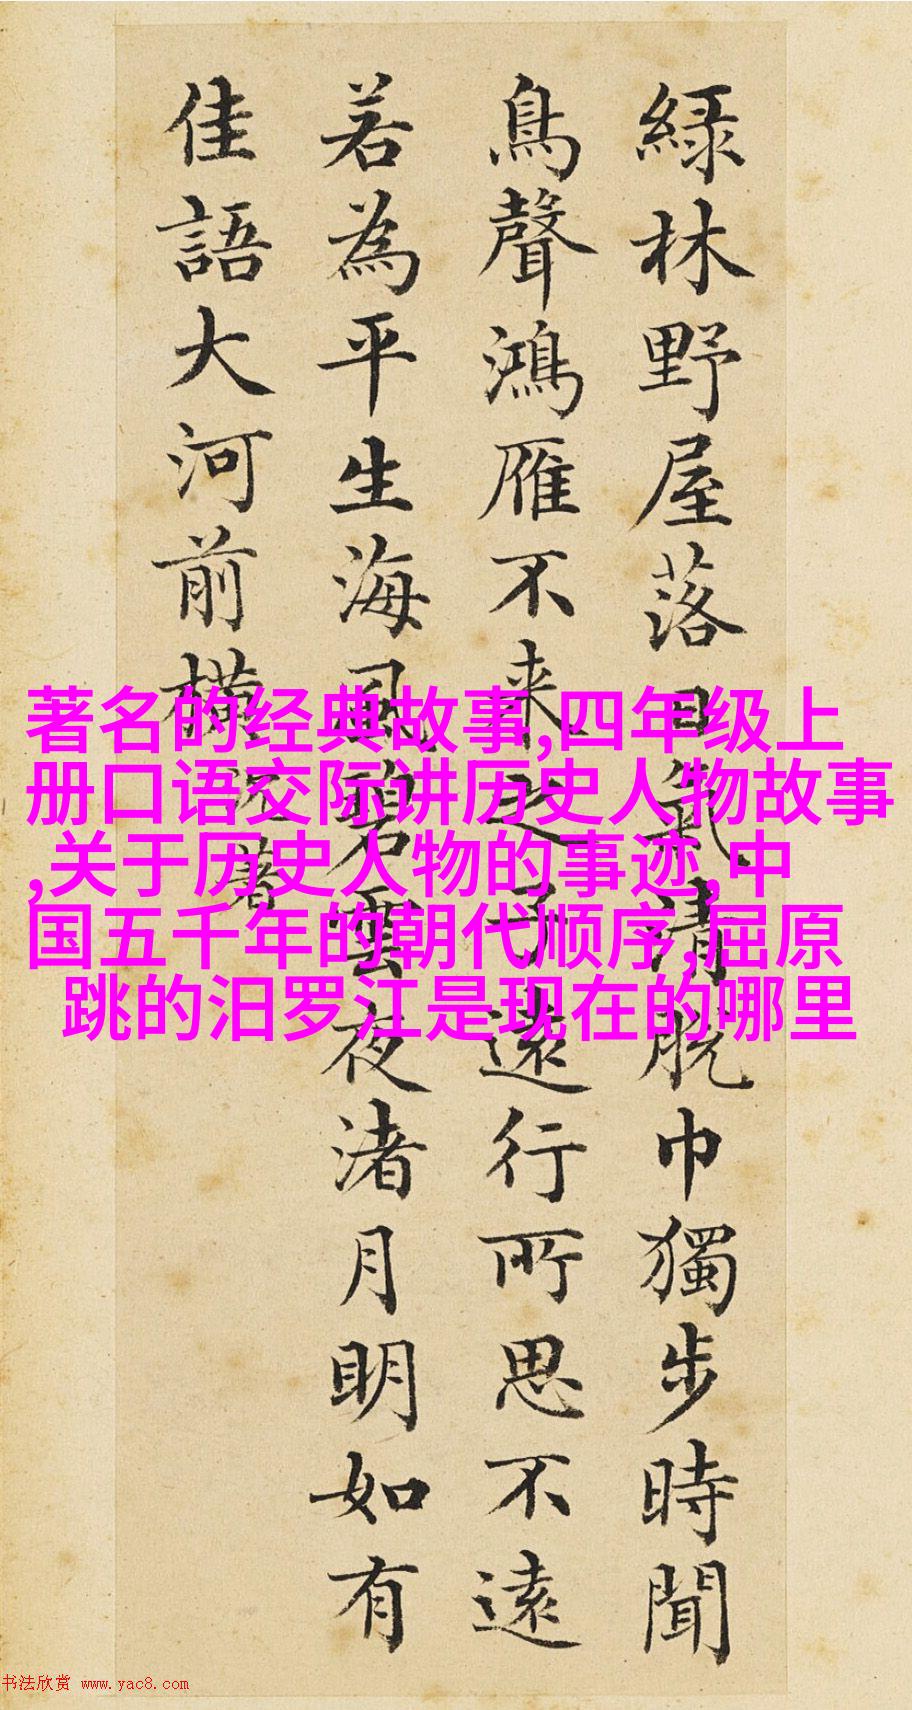 緑林野屋落日氣清脫巾獨步時聞
鳥聲鴻雁不来之子遠行所思不遠
若為平生海風碧雲夜渚月明如有
佳語大河前橫 沈著
著名的经典故事,四年级上
册口语交际讲历史人物故事
,关于历史人物的事迹,中
国五千年的朝代顺序,屈原
跳的汨罗江是现在的哪里
书法欣赏 www.yac8.com